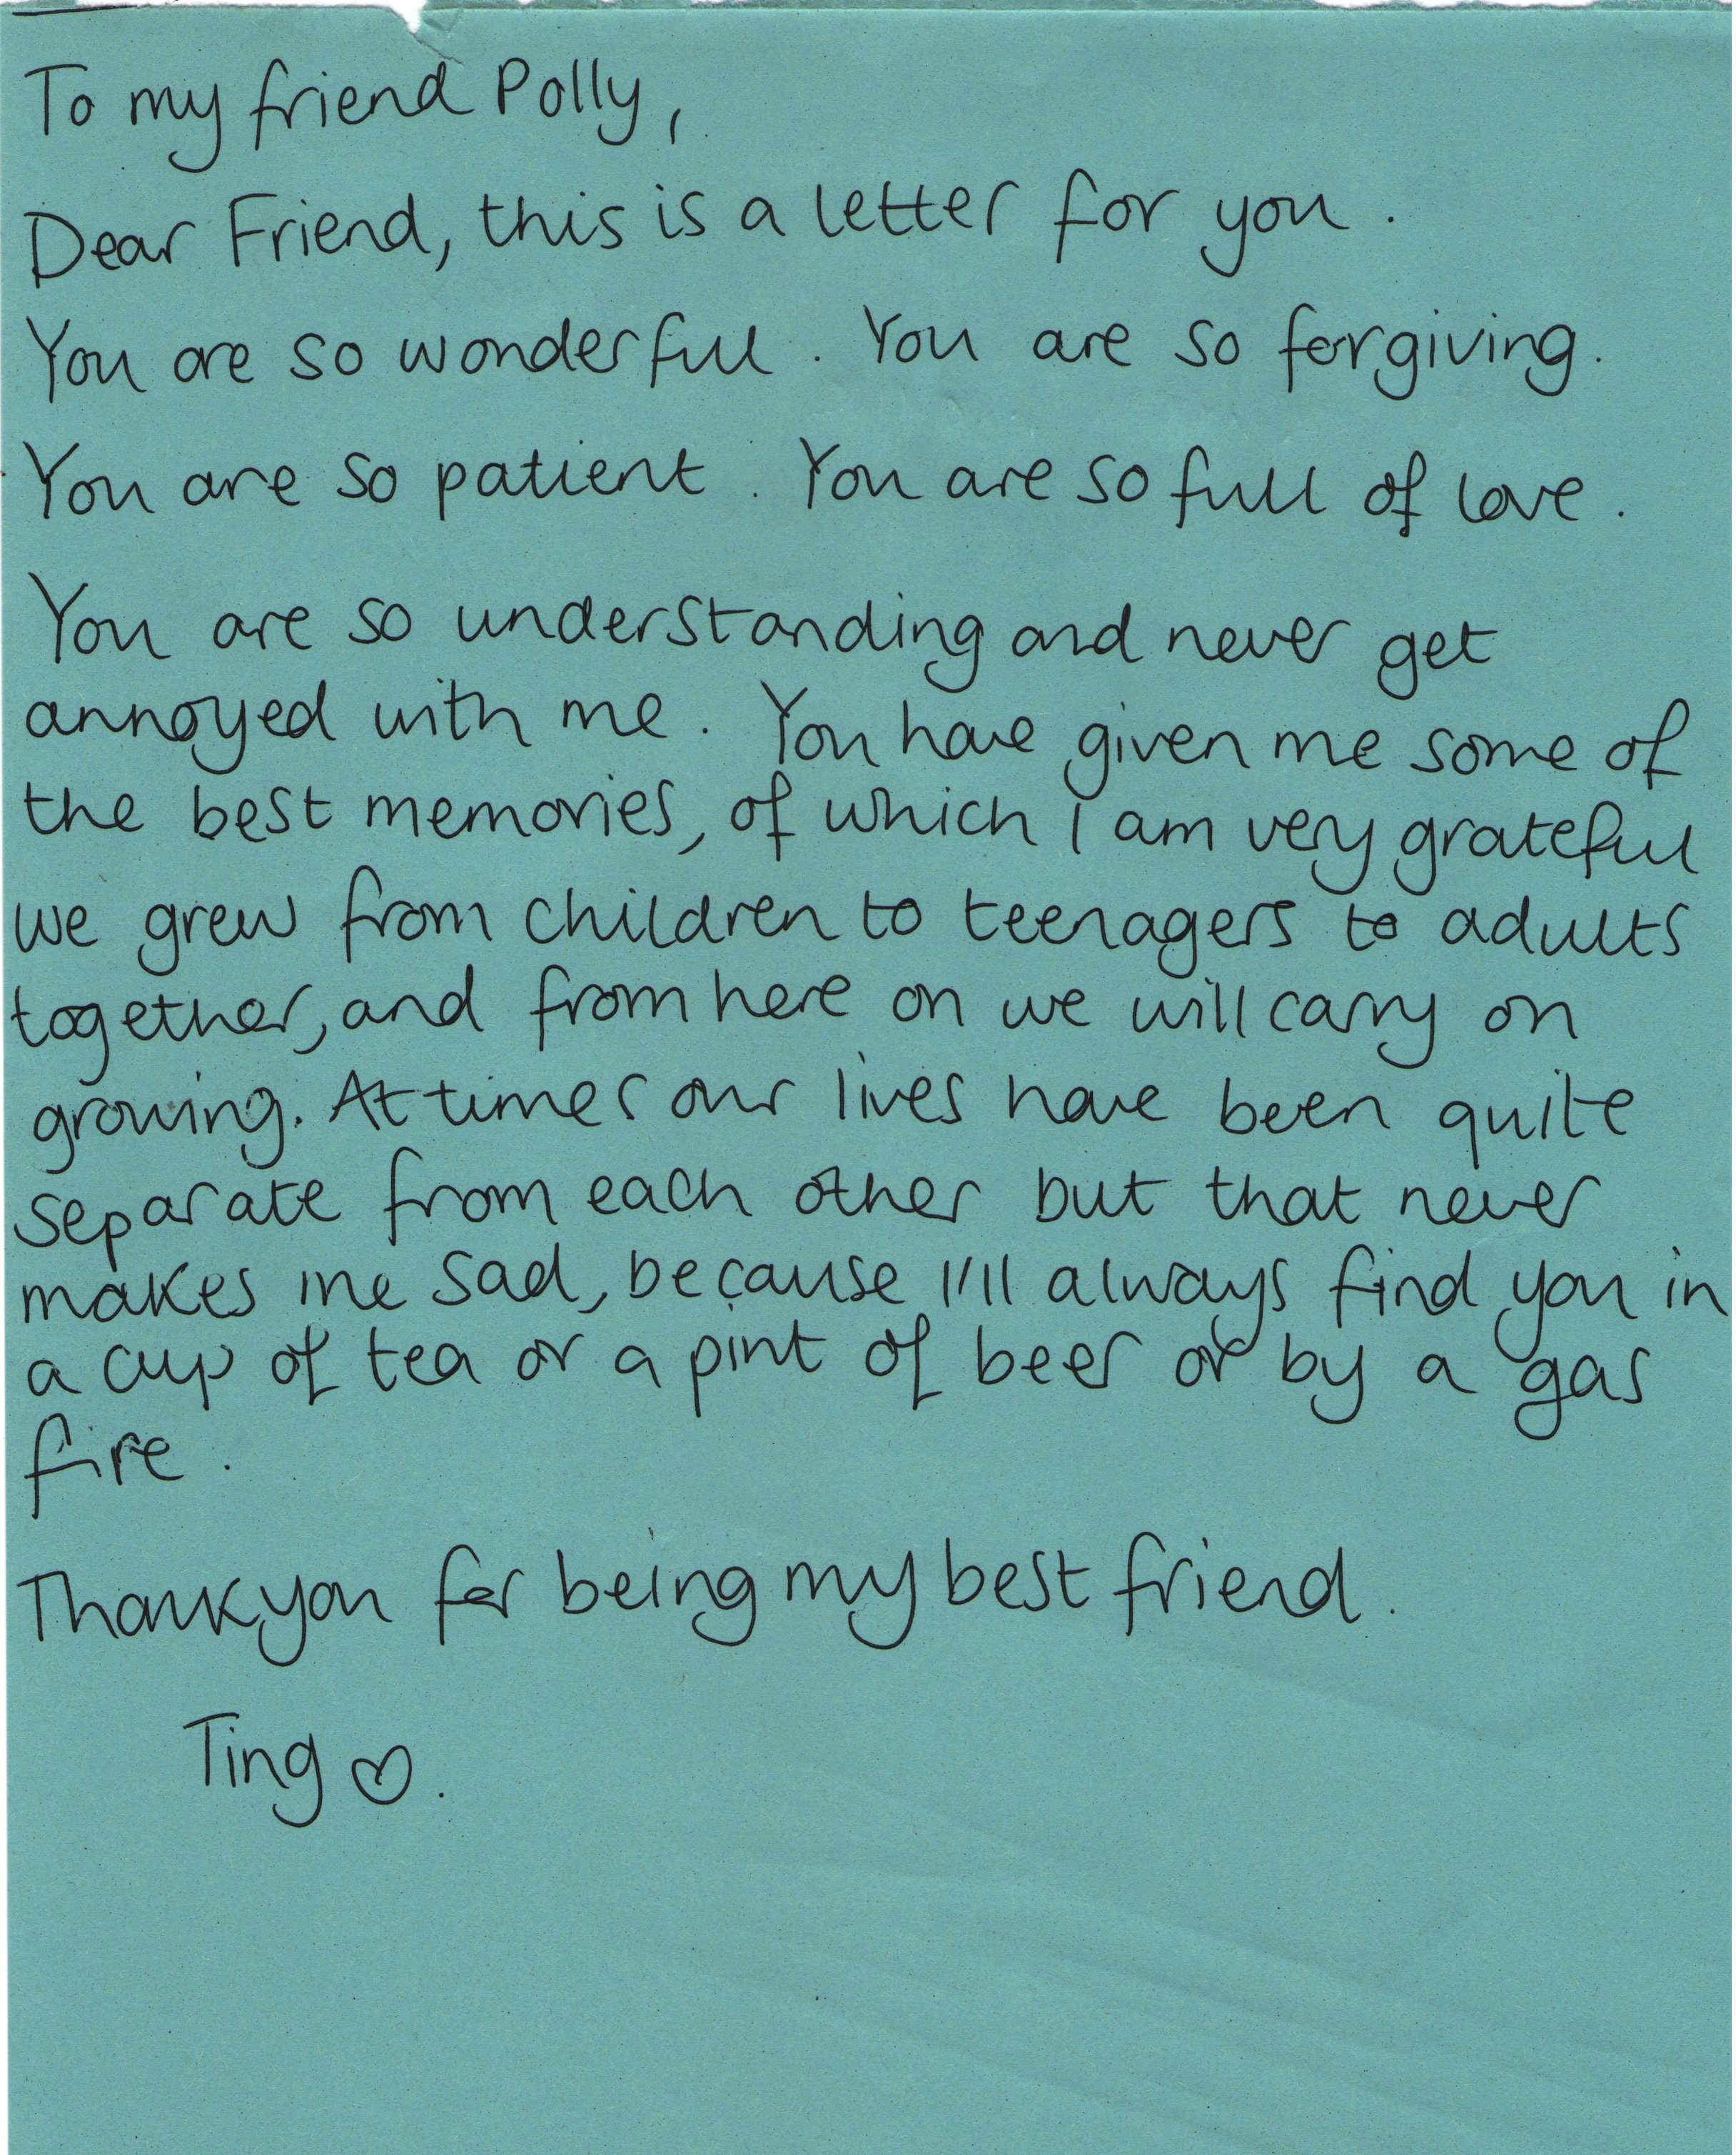 To my friend Polly,
Dear Friend, this is a letter for you.
You are so wonderful. You are so forgiving.
You are so patient. You are so full of love.
You are so understanding and never get
annoyed with me. You have given me some of
the best memories, of which I am very grateful
we grew from children to teenagers to adults
together, and from here on we will carry on
growing. At times our lives have been quite
separate from each other but that never
makes me sad, because I'll always find you in
a cup of tea or a pint of beer or by a gas
fire.
Thankyou for being my best friend.
Ting ♡.